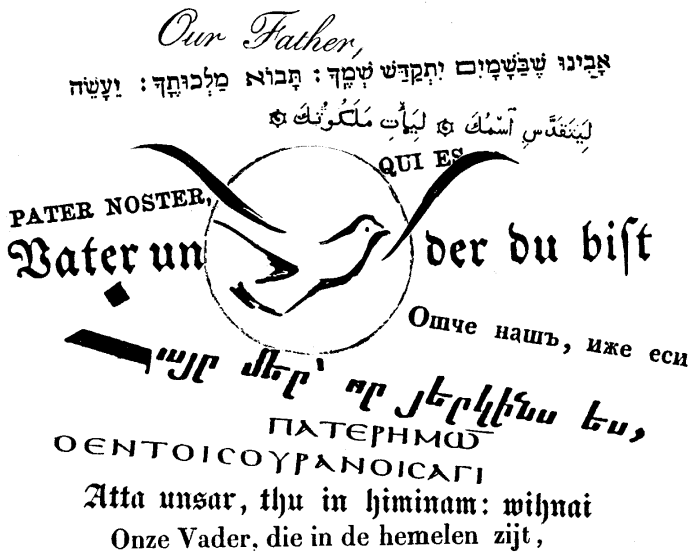 Our Father,
אָבִינוּ שֶׁבַּשָּׁמַיִם יִתְקַדֵּשׁ שְׁמֶךָ: תָּבוֹא מַלְכוּתֶךָ: יֵעָשֶׂה
لِيَتَقَدَّسِ ٱسْمُكَ ۞ لِيَأْتِ مَلَكُوتُكَ ۞
QUI ES
PATER NOSTER,
Vater un der du biſt
Отче нашъ, иже еси
Հայր մեր՝ որ յերկինս ես,
ΠΑΤΕΡΗΜΩ̅
ΟΕΝΤΟΙϹΟΥΡΑΝΟΙϹΑΓΙ
Atta unsar, thu in himinam: wihnai
Onze Vader, die in de hemelen zijt,